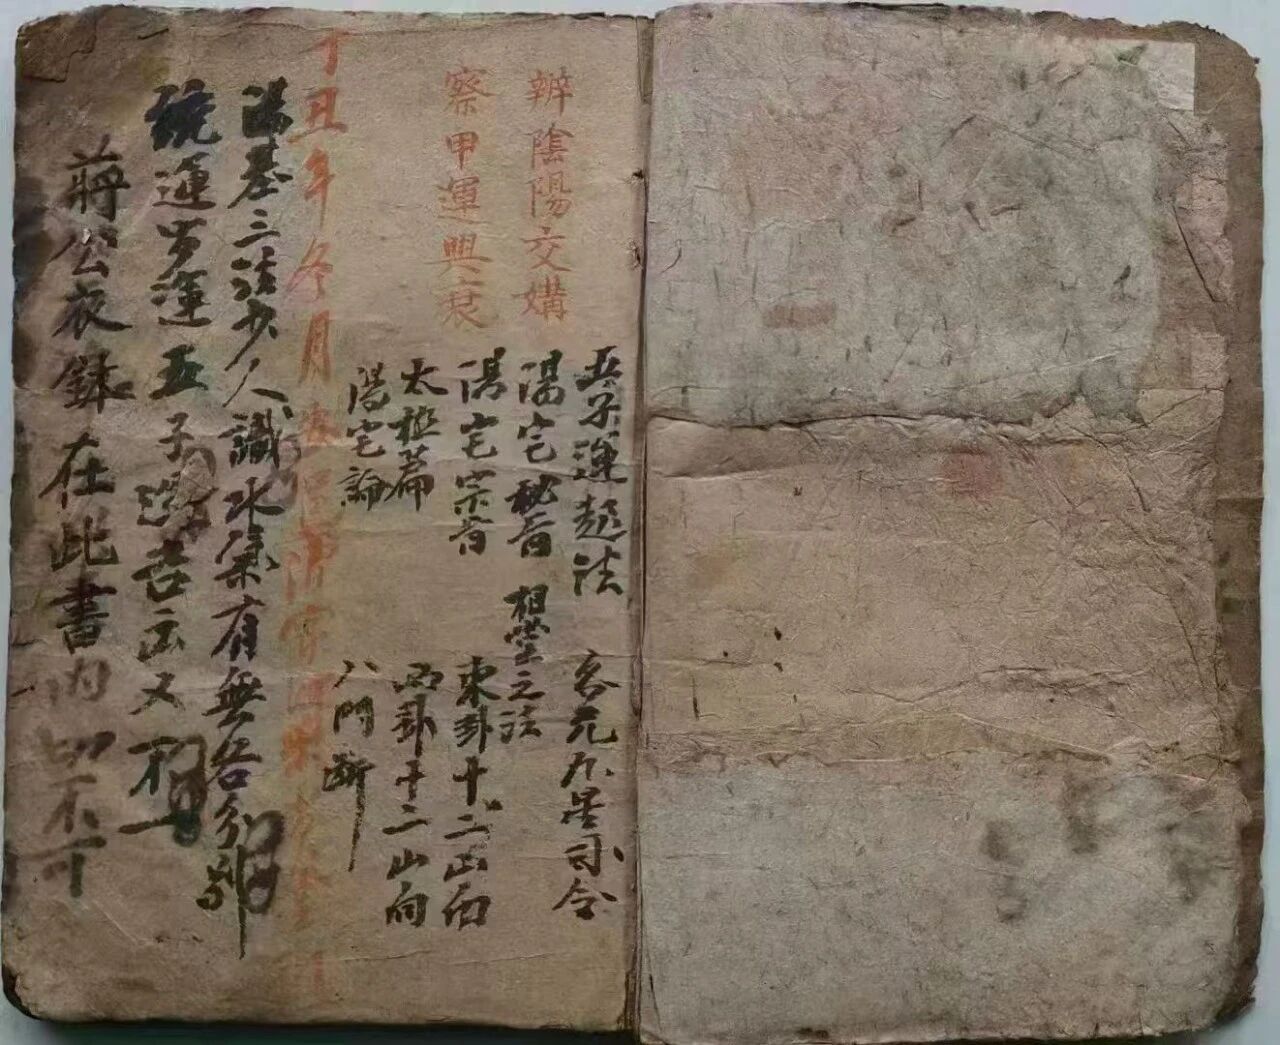 辦陰陽交媾
察甲運興衰
五子運起法
玄元九星司令
陽宅秘旨
相塋之法
陽宅宗旨
東卦十二山向
太極篇
西卦十二山向
陽宅論
八門斷
丁丑年冬月
陽基三法少人識水氣有無各分別
統運 運五子 吉凶又
蔣公衣鉢在此書內切不可